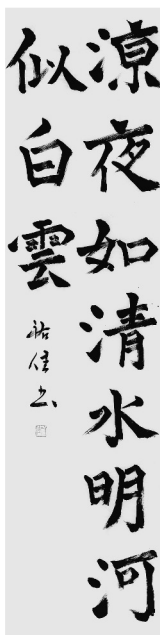 涼夜如清水明河
似白雲
祐佳书